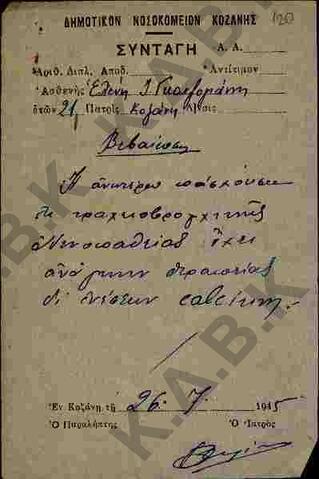 120
ΔΗΜΟΤΙΚΟΝ ΝΟΣΟΚΟΜΕΙΟΝ ΚΟΖΑΝΗΣ
ΣΥΝΤΑΓΗ Α. Α.
Ἀριθ. Διπλ. Ἀποδ. Ἀντίτιμον
Ἀσθενὴς Ἑλένη Ι.
ἐτῶν 21 Πατρὶς Κοζάνη
Βεβαίωσις
Ἡ ἀνωτέρω πάσχουσα
ἐκ τραχειοβρογχικῆς
ἀδενοπαθείας ἔχει
ἀνάγκην θεραπείας
δι' ἐνέσεων calcium.
Ἐν Κοζάνῃ τῇ 26. 7 1945
Ὁ Παραλήπτης Ὁ Ἰατρὸς
Κ.Α.Β.Κ